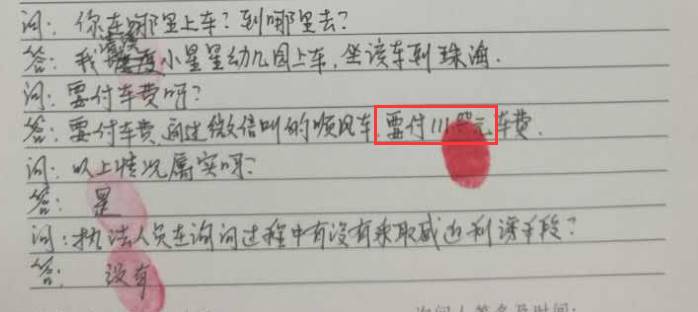 问：你在哪里上车？到哪里去？
答：我小星星幼儿园上车，坐该车到珠海.
问：要付车费吗？
答：要付车费，通过微信叫的顺风车，要付111元车费.
问：以上情况属实吗？
答：是
问：执法人员在询问过程中有没有采取威迫利诱手段？
答：没有